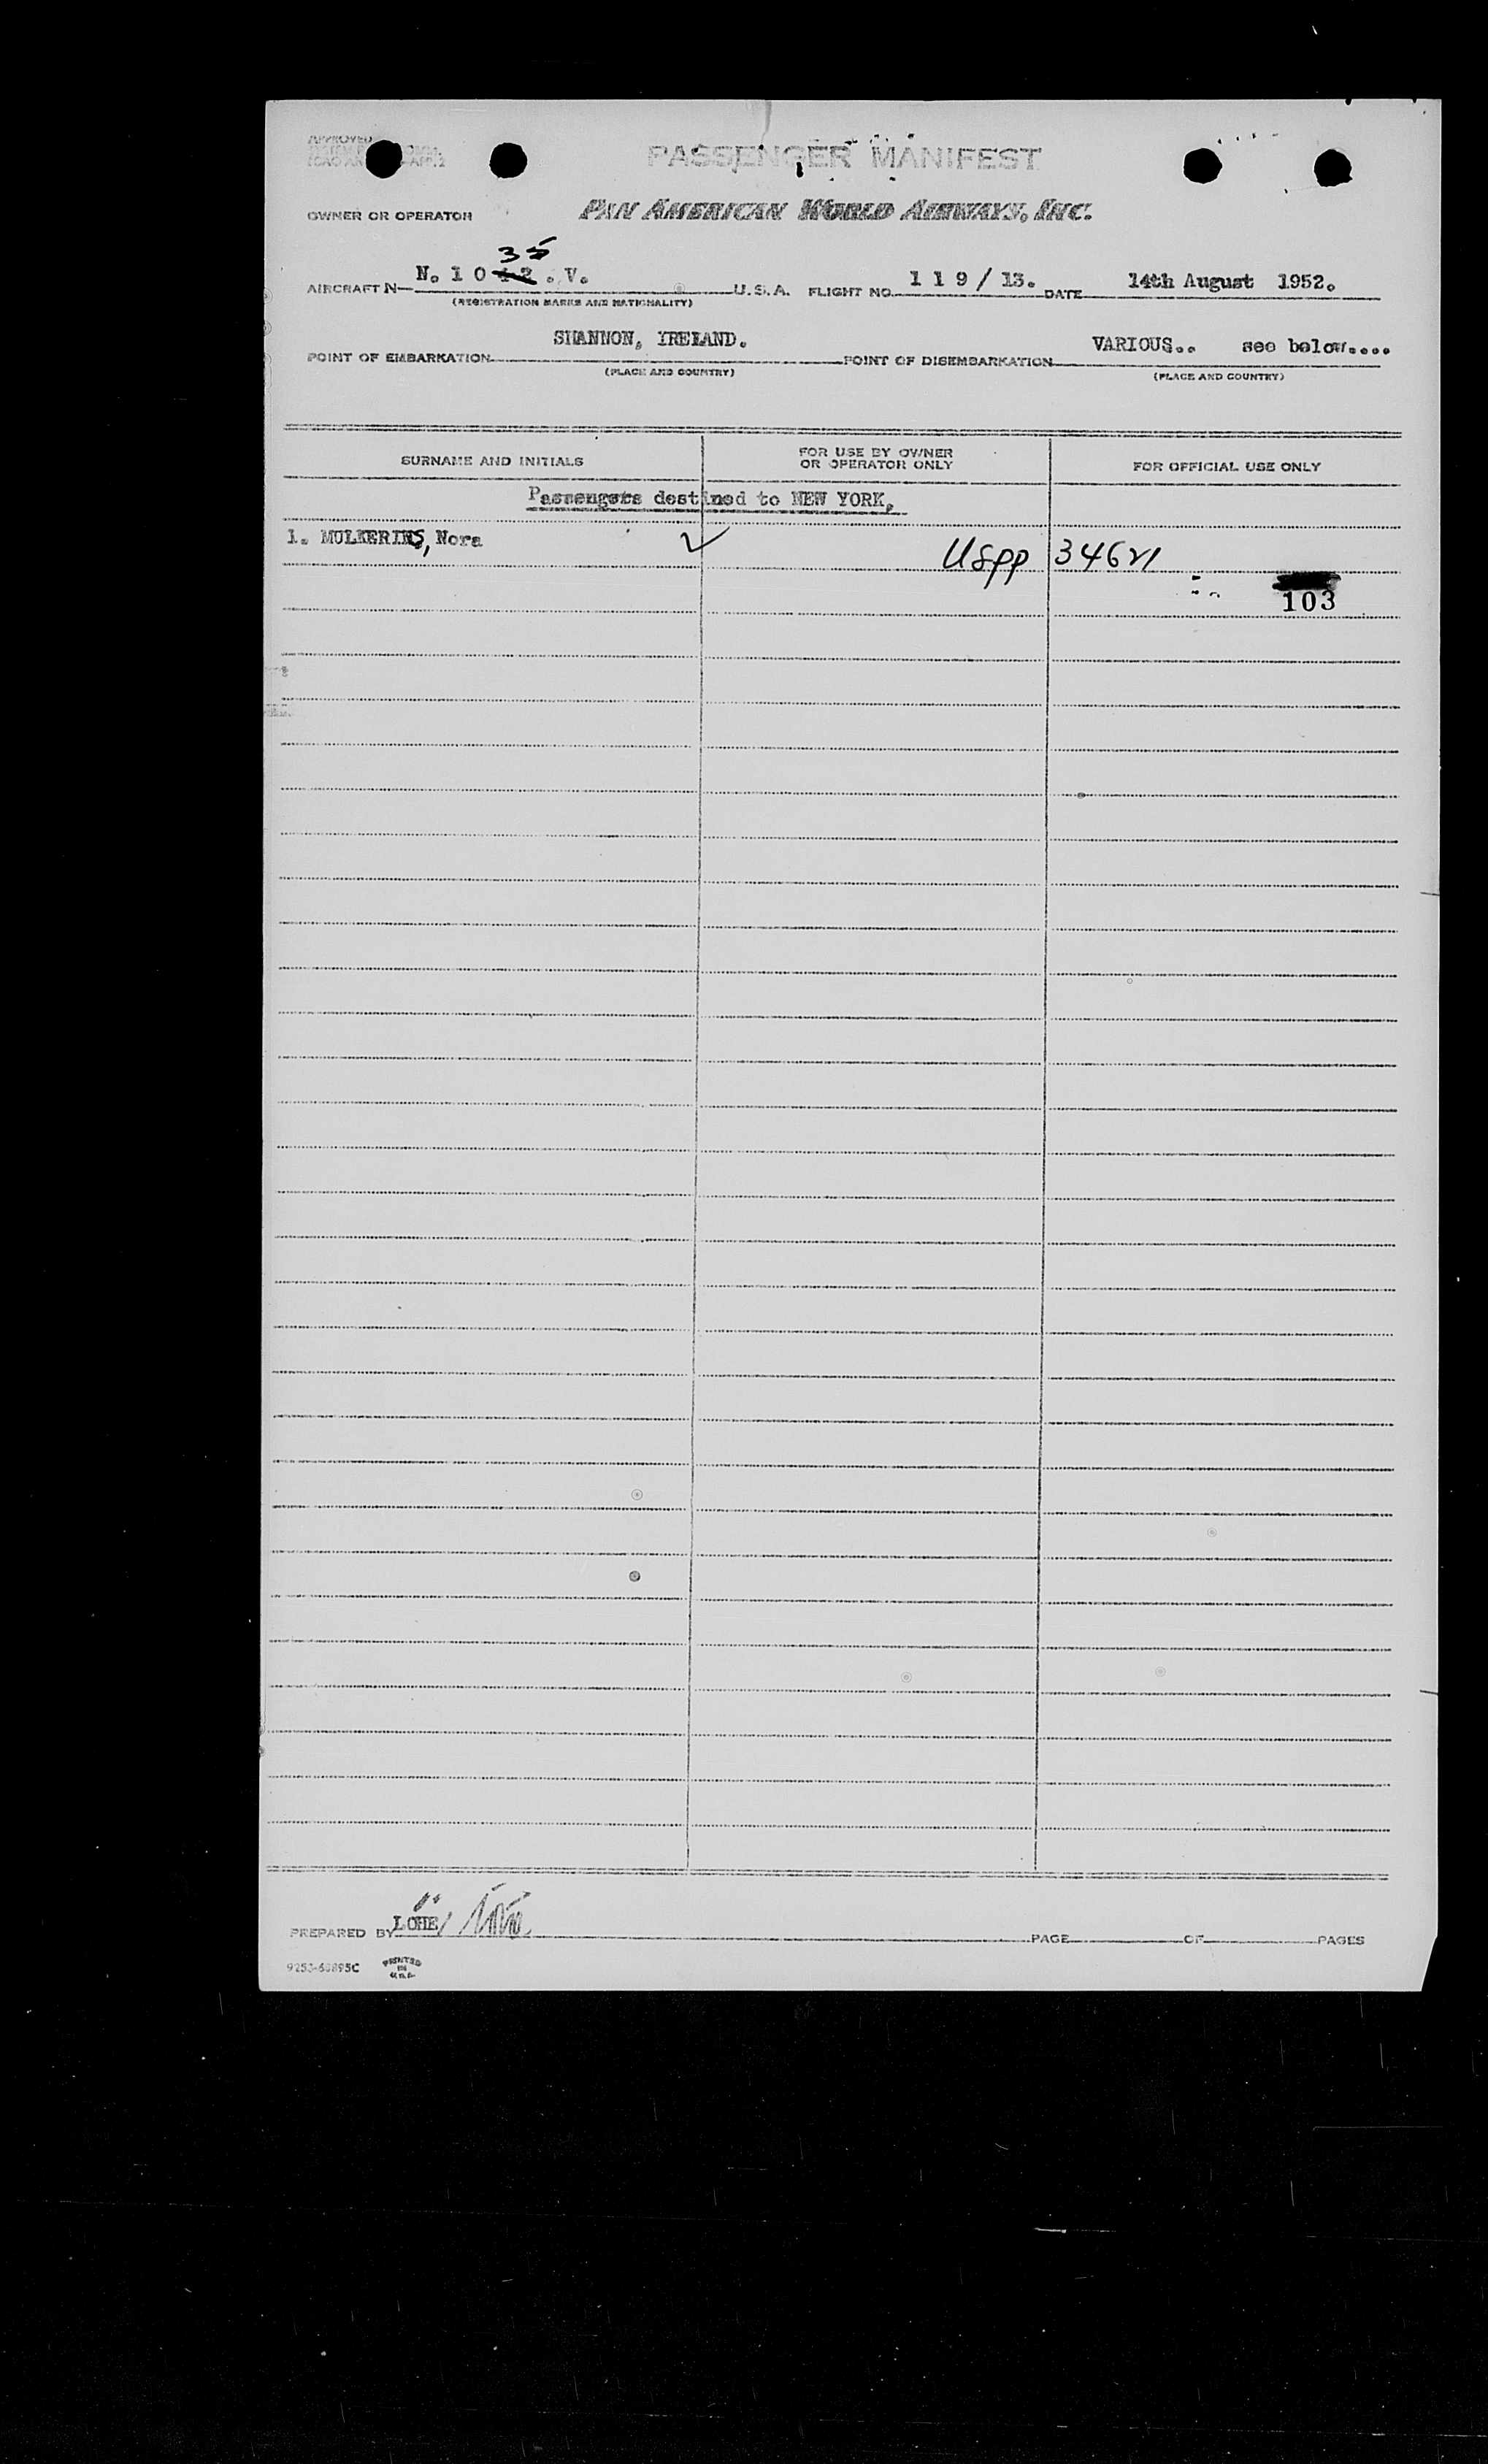 APPROVED
PASSENGER MANIFEST
OWNER OR OPERATOR PAN AMERICAN WORLD AIRWAYS, INC.
35
AIRCRAFT N— N. 1 0 4 2 . V. U.S.A. FLIGHT NO. 1 1 9 / 13. DATE 14th August 1952.
(REGISTRATION MARKS AND NATIONALITY)
POINT OF EMBARKATION SHANNON, IRELAND. POINT OF DISEMBARKATION VARIOUS.. see below....
(PLACE AND COUNTRY) (PLACE AND COUNTRY)
SURNAME AND INITIALS FOR USE BY OWNER OR OPERATOR ONLY FOR OFFICIAL USE ONLY
Passengers destined to NEW YORK,
1. MULKERINS, Nora ✓ USPP 34621
103
PREPARED BY LOHE/ PAGE OF PAGES
PRINTED IN U.S.A.